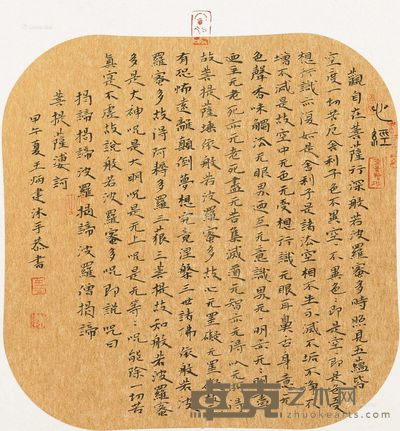 心經
觀自在菩薩行深般若波羅蜜多時照見五蘊皆
空度一切苦厄舍利子色不異空〻不異色〻即是空〻即是色受
想行識亦復如是舍利子是諸法空相不生不滅不垢不淨不
增不減是故空中无色无受想行識无眼耳鼻舌身意无
色聲香味觸法无眼界迺至无意識界无明亦无〻明盡
迺至无老死亦无老死盡无苦集滅道无智亦无得以无所得
故菩提薩埵依般若波羅蜜多故心无罣礙无罣礙故无
有恐怖遠離顛倒夢想究竟涅槃三世諸佛依般若波
羅蜜多故得阿耨多羅三藐三菩提故知般若波羅蜜
多是大神呪是大明呪是无上呪是无等〻呪能除一切苦
真實不虛故說般若波羅蜜多呪即說呪曰
揭諦揭諦波羅揭諦波羅僧揭諦
菩提薩婆訶
甲午夏王炳建沐手恭書
艺术网